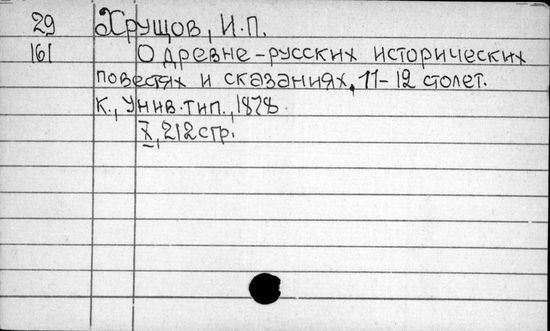 29 Хрущов, И.П.
161 О древне-русских исторических
повестях и сказаниях, 11-12 столет.
К., Унив. тип., 1878
X, 212 стр.